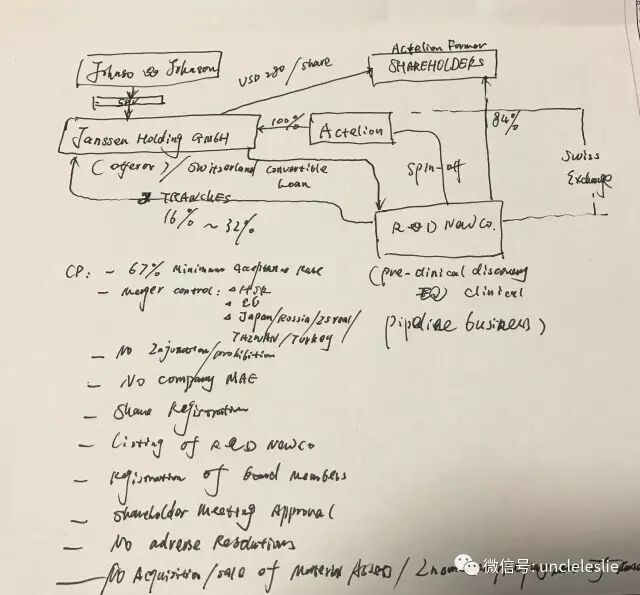 Johnson & Johnson
SPV
Janssen Holding GmbH
(Offeror) / Switzerland
USD 280 / share
Actelion Former
SHAREHOLDERS
100%
Actelion
84%
Swiss
Exchange
Spin-off
Convertible
Loan
2 TRANCHES
16% ~ 32%
R&D NewCo.
(pre-clinical discovery
clinical
pipeline business)
CP: - 67% Minimum Acceptance Rate
- Merger control: HSR
EU
Japan/Russia/Israel/
TAIWAN/Turkey
- No Injunction/prohibition
- No company MAE
- Share Registration
- Listing of R&D NewCo
- Registration of Board Members
- Shareholder Meeting Approval
- No adverse Resolutions
- No Acquisition/sale of Material Assets /
微信号: uncleleslie